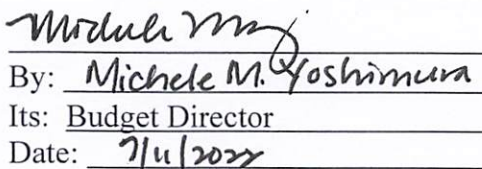 By: Michele M. Yoshimura
Its: Budget Director
Date: 7/11/2022